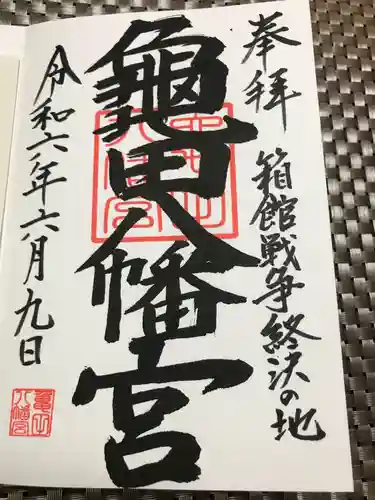 奉拝
箱館戦争終決の地
龜田八幡宮
令和六年六月九日